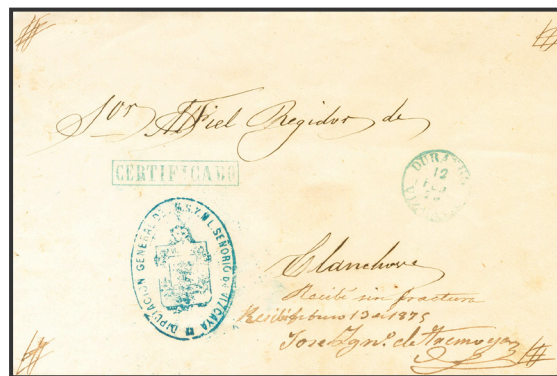 Sor Fiel Regidor de
CERTIFICADO
DURANGO
12
FEB
DIPUTACION GENERAL DE M.N.Y M.L. SEÑORIO DE VIZCAYA
Elanchove
Recibí sin fractura
12 de 1875
Jose Ygn.º de